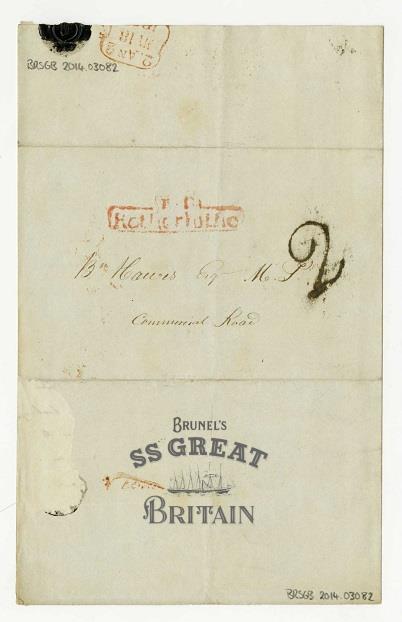 BRSGB 2014.03082
T.P
Rotherhithe
2
Bn Hawes Esqr M.P.
Commercial Road
BRUNEL'S
SS GREAT
BRITAIN
BRSGB 2014.03082